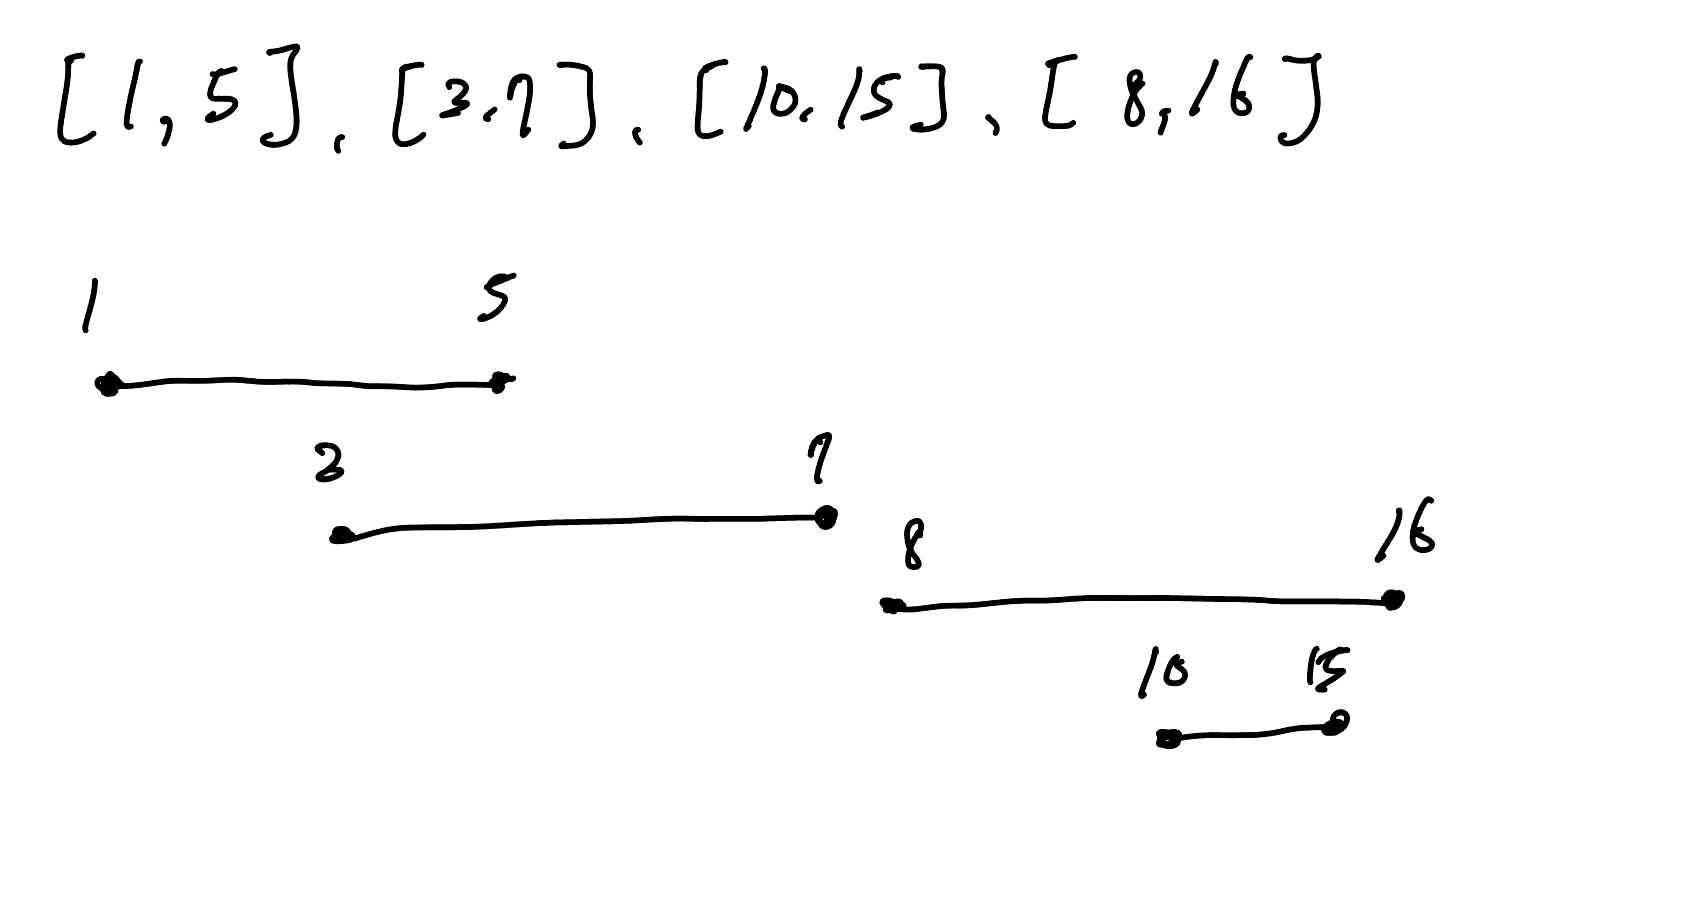 [1,5], [3.7], [10.15], [8,16]
1 5
3 7
8 16
10 15